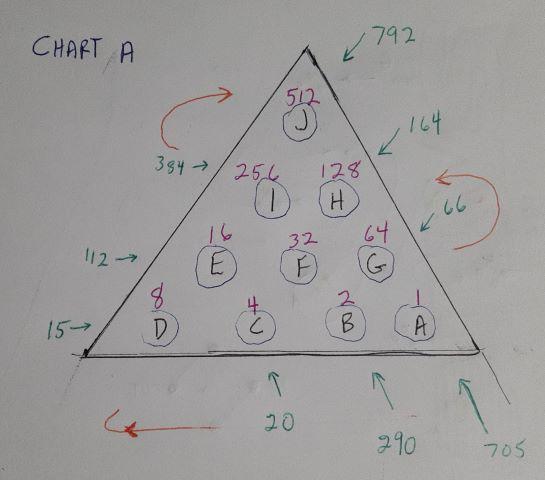 CHART A
792
512
J
164
384
256 128
I H
66
16 32 64
E F G
112
8 4 2 1
D C B A
15
20
290
705